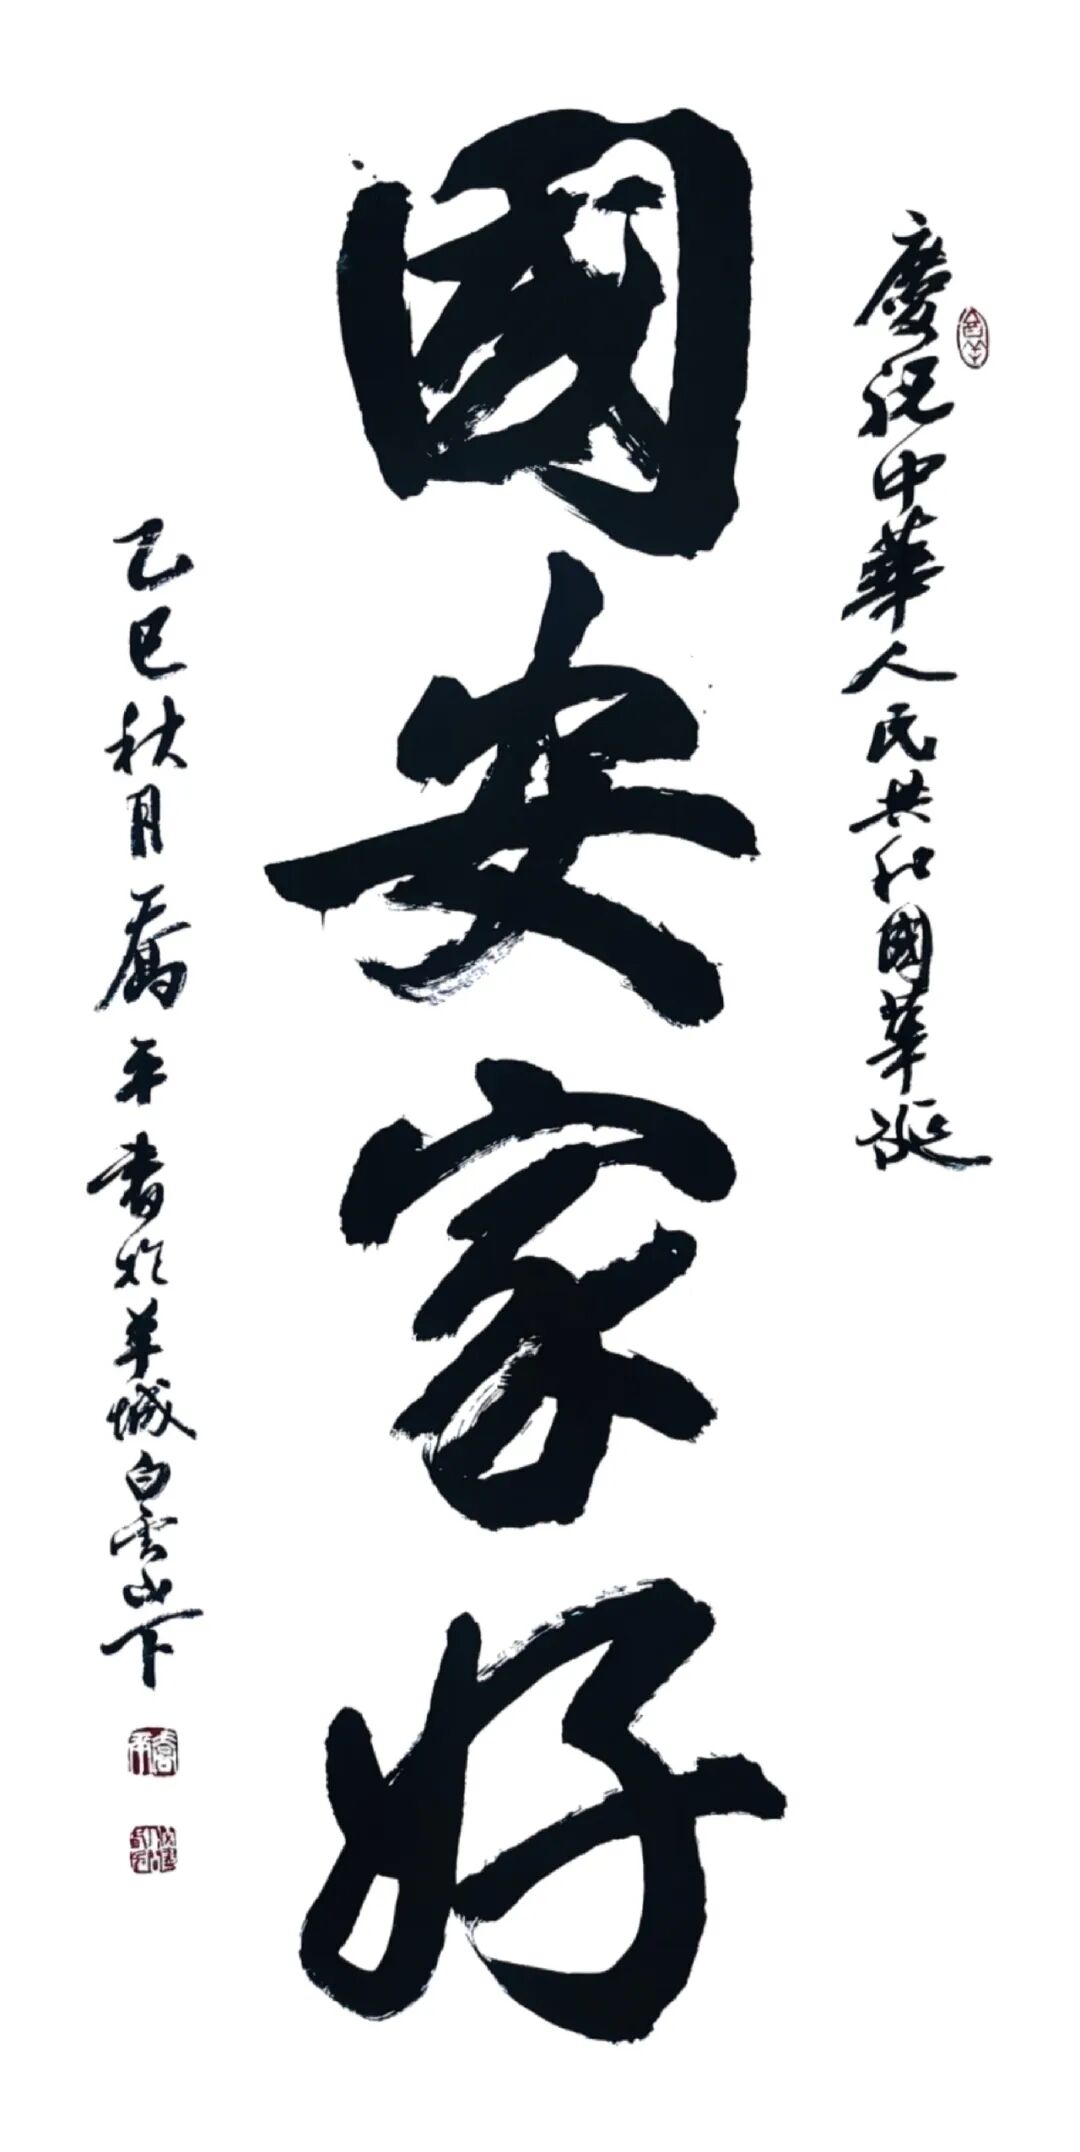 慶祝中華人民共和國華誕
國安家好
乙巳秋月喬平書於羊城白雲山下